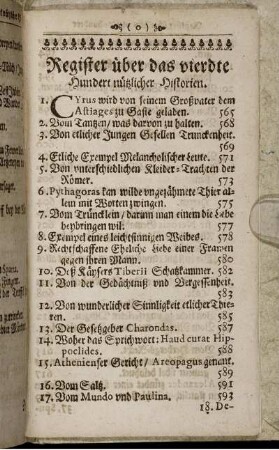 (0)
Register über das vierdte
Hundert nützlicher Historien.
1. CYrus wird von seinem Großvater dem
Astiages zu Gaste geladen. 565
2. Vom Tantzen/ was darvon zu halten. 568
3. Von etlicher Jungen Gesellen Trunckenheit.
569
4. Etliche Exempel Melancholischer Leute. 571
5. Von unterschiedlichen Kleider-Trachten der
Römer. 573
6. Pythagoras kan wilde ungezähmte Thier al-
lein mit Worten zwingen. 575
7. Vom Träncklein/ darinn man einem die Liebe
beybringen wil. 577
8. Exempel eines leichtsinnigen Weibes. 578
9. Rechtschaffene Eheliche Liebe einer Frauen
gegen ihren Mann. 580
10. Deß Käysers Tiberii Schatzkammer. 582
11. Von der Gedächtniß und Vergessenheit.
583
12. Von wunderlicher Sinnligkeit etlicher Thie-
ren. 585
13. Der Gesetzgeber Charondas. 587
14. Woher das Sprichwort: Haud curat Hip-
poclides. 588
15. Athenienser Gericht/ Areopagus genant.
589
16. Vom Saltz. 591
17. Vom Mundo und Paulina. 593
18. De-